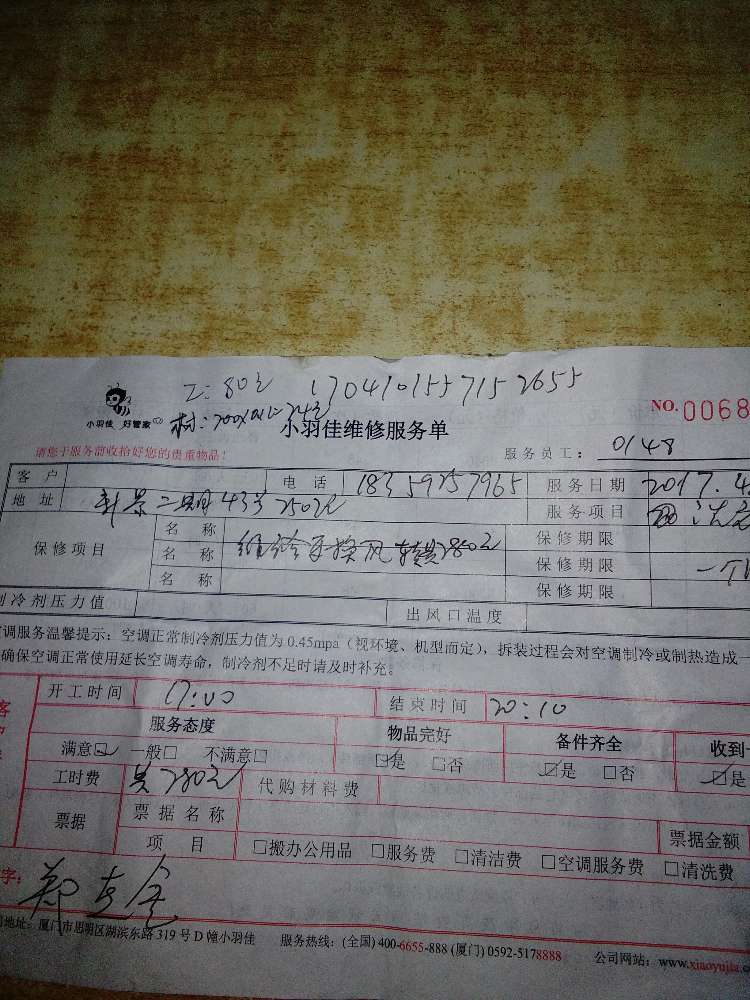 工:80元 170410155715 2655
小羽佳 好管家
材:200
小羽佳维修服务单
NO.0068
请您于服务前收拾好您的贵重物品!
服务员工: 0148
客户 电话 18359257965 服务日期 2017.4
地址 二期43号 2502 服务项目
保修项目 名称 保修期限
名称 更换风 280元 保修期限 一个
名称 保修期限
制冷剂压力值 出风口温度
调服务温馨提示:空调正常制冷剂压力值为0.45mpa(视环境、机型而定),拆装过程会对空调制冷或制热造成一
确保空调正常使用延长空调寿命,制冷剂不足时请及时补充。
客 开工时间 17:00 结束时间 20:10
服务态度 物品完好 备件齐全 收到
满意☑ 一般□ 不满意□ ☑是 □否 ☑是 □否 ☑是
工时费 共280元 代购材料费
票据 票据名称 票据金额
项目 □搬办公用品 □服务费 □清洁费 □空调服务费 □清洗费
字:
地址:厦门市思明区湖滨东路319号D幢小羽佳 服务热线:(全国)400-6655-888 (厦门)0592-5178888 公司网站:www.xiaoyujia.c